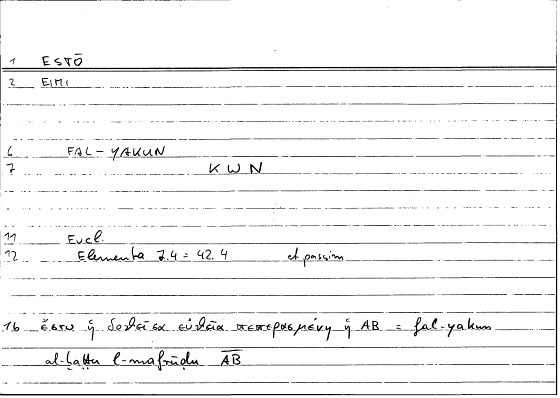 1 ESTŌ
2 EIMI
6 FAL-YAKUN
7 KWN
11 Eucl.
12 Elementa I.4 = 42.4 et passim
16 ἔστω ἡ δοθεῖσα εὐθεῖα πεπερασμένη ἡ AB = fal-yakun
al-ḫaṭṭu l-mafrūḍu A͞B